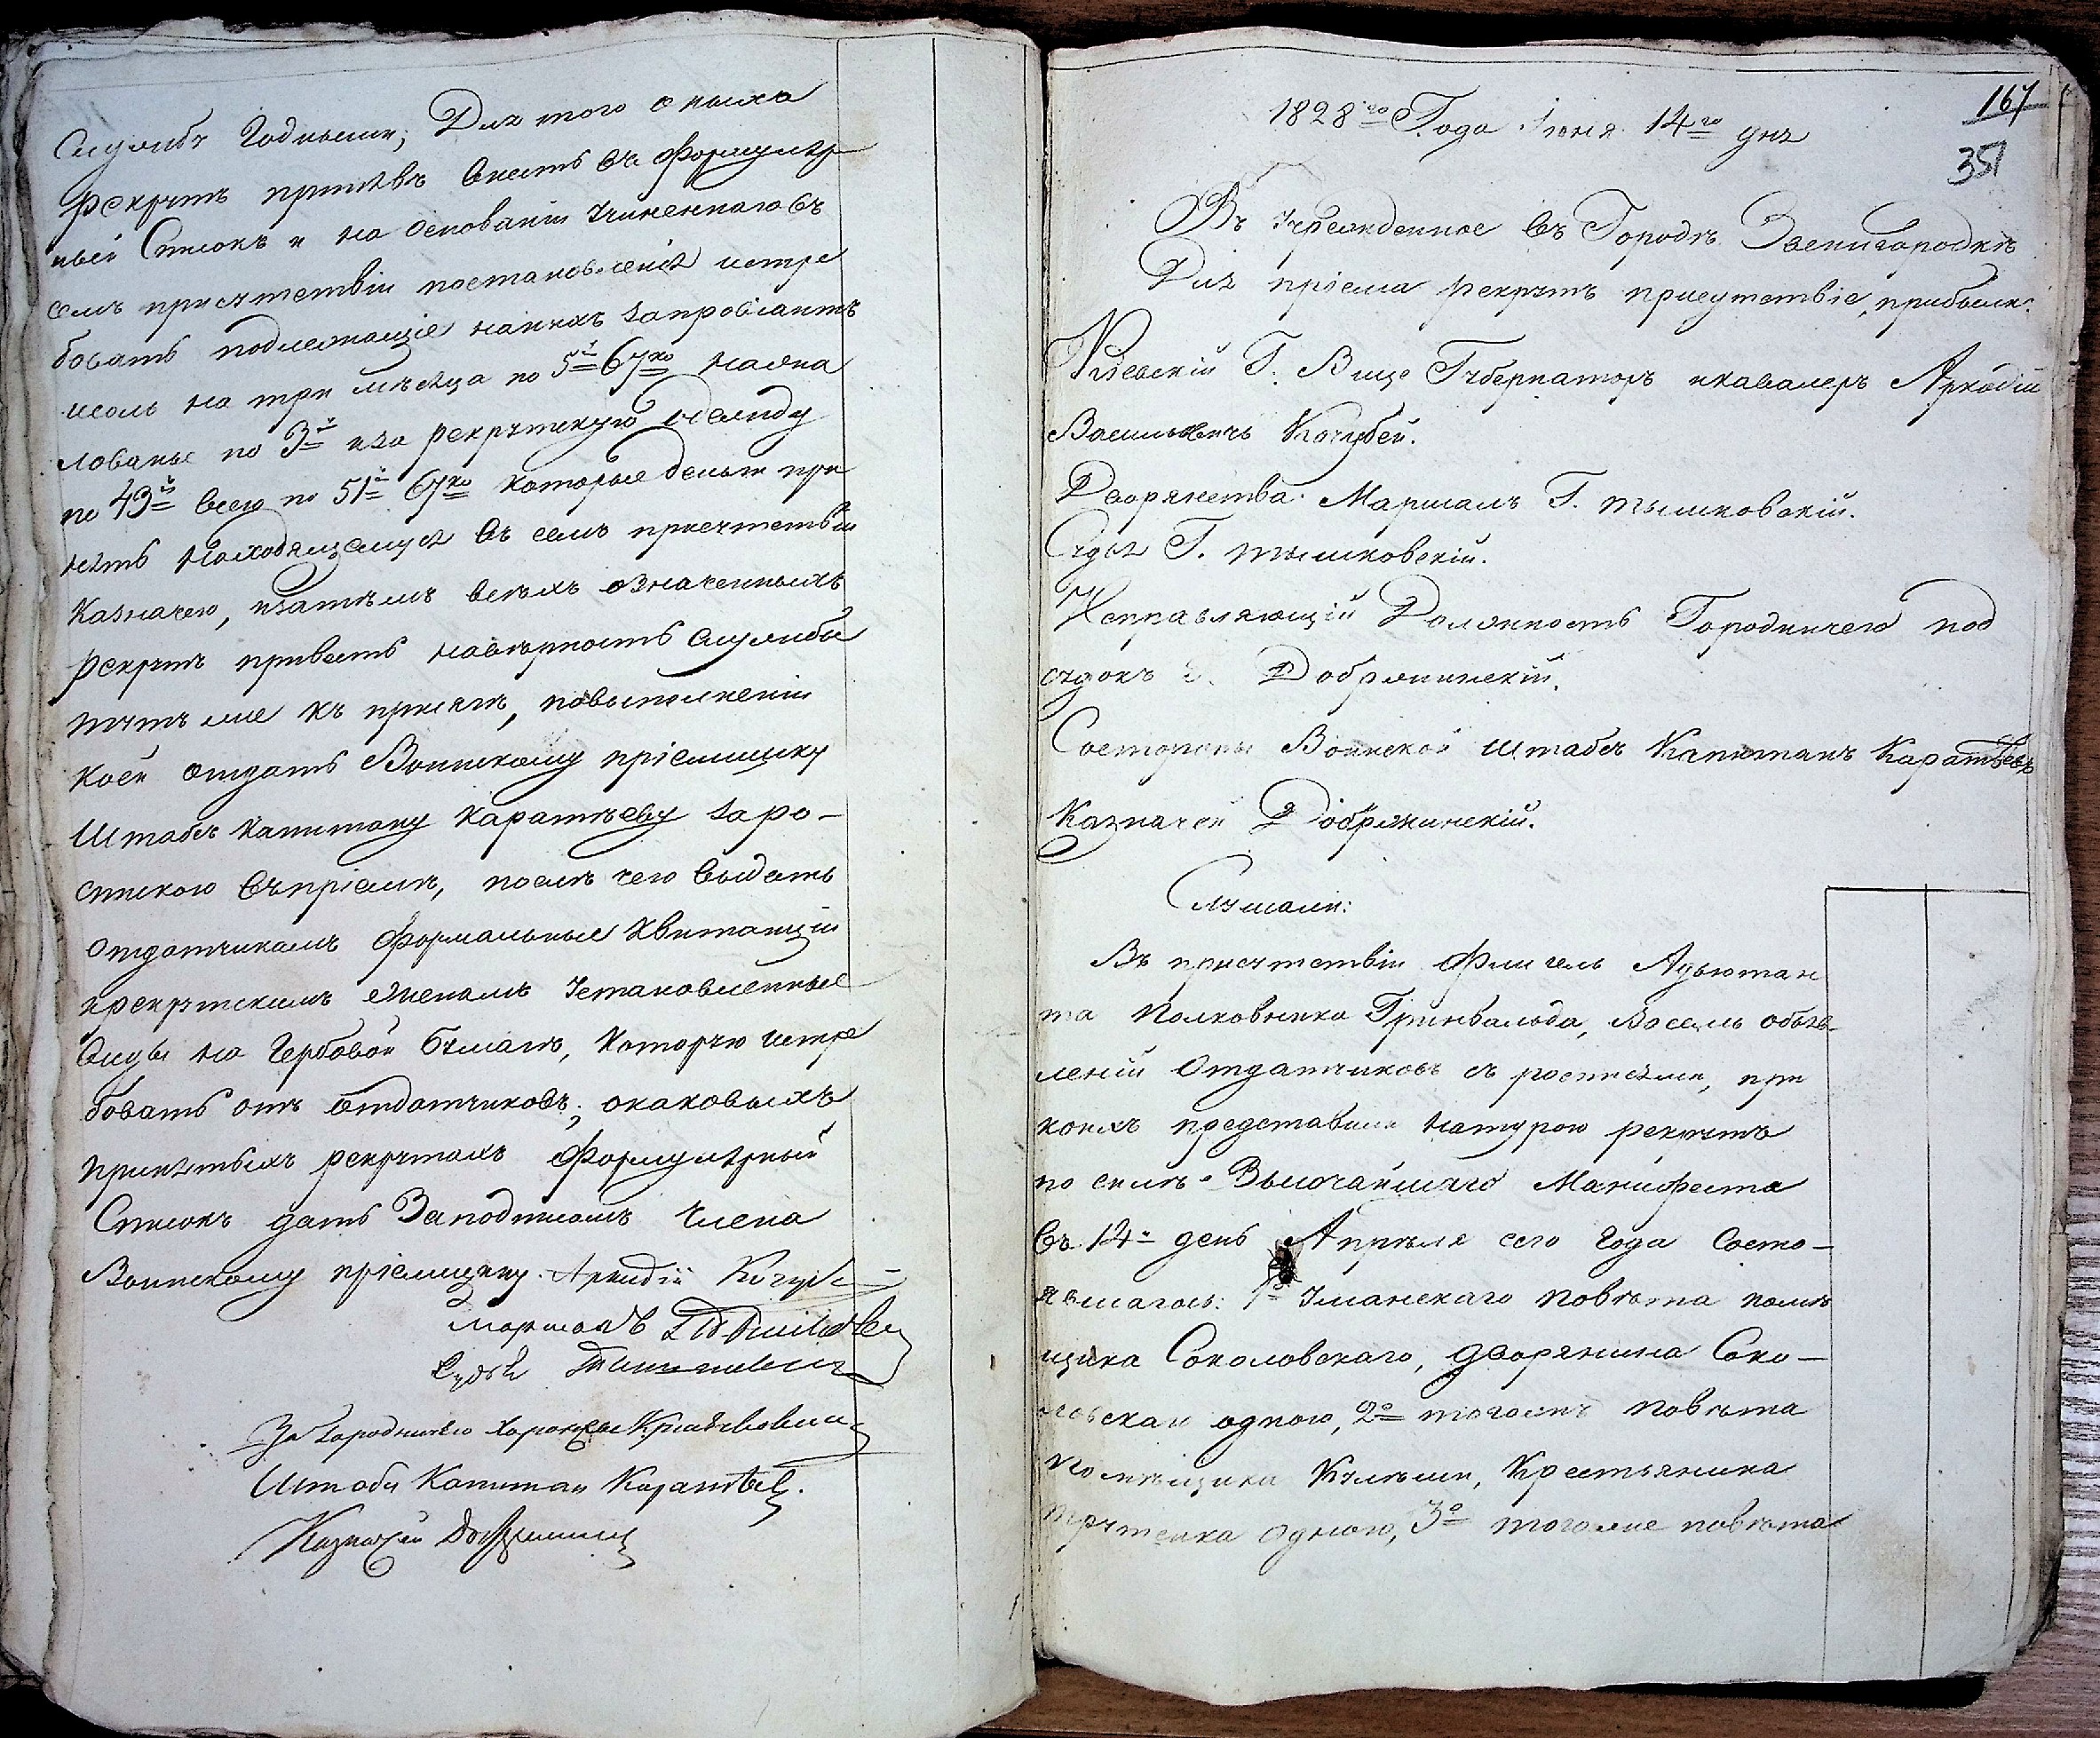 Службѣ Годными; Для того оныхъ
рекрутъ принявъ внесть въ формуляр
ный Списокъ и на основаніи Учиненнаго въ
семъ присутствіи постановленія истре
бовать подлежащіе на нихъ за провіантъ
исоль на три мѣсяца по 5й 67ко жало
лованье по 3й иза рекрутскую одежду
по 43й всего по 51й 67ко которые деньги при
нять находящемуся въ семъ присутствіи
Казначею, изатѣмъ всѣхъ означенныхъ
рекрутъ привесть наверность службы
тутъ же къ присягѣ, повыполненіи
коей отдать Воинскому пріемщику
Штабсъ Капитану Каратѣеву заро-
спискою въпріемѣ, послѣ чего выдать
отдатчикамъ формальные Квитанціи
ирекрутскимъ женамъ Установленные
виды на Гербовой бумагѣ, Которую истре
бовать отъ отдатчиковъ; окаковыхъ
принятыхъ рекрутахъ Формулярный
Списокъ дать Заподписомъ Члена
Воинскому пріемщику. Аркадій Кочубей
Маршалъ
Судья
За Городничего Хорунжы
Штабсъ Капитан Каратѣев.
Казначей
167
351
1828го Года Іюня 14го дня
Въ Учрежденное въ Городѣ Звенигородкѣ
Для пріема рекрутъ присутствіе, прибыли:
Кіевскій Г. Вице Губернаторъ икавалеръ Аркадій
Васильевичъ Кочубей.
Дворянства Маршалъ Г. Тышковскій.
Судья Г. Тышковскій.
Исправляющій Должность Городничего под
судокъ Г. Добржинскій.
Состороны Воинской Штабсъ Капитанъ Каратѣевъ
Казначей Добржинскій.
Слушали:
Въ присутствіи Флигель Адъютан
та Полковника Гринвальда, Восемь объяв-
леній Отдатчиковъ съ росписями, при
коихъ представили натурою рекрутъ
по силѣ Высочайшаго Манифеста
въ 14й день Апрѣля сего года Состо-
явшагось: 1е Уманскаго повѣта помѣ
щика Соколовскаго, дворянина Соко-
ловскаго одного, 2е тогожъ повѣта
Помѣщика Крестьянина
одного, 3е тогоже повѣта